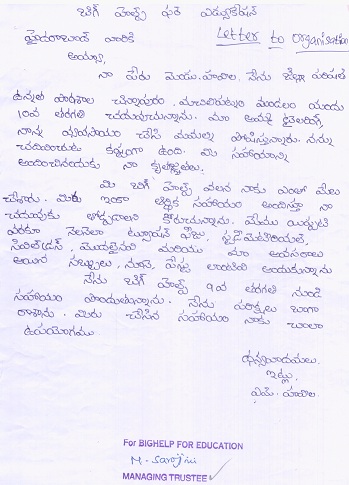 బిగ్ హెల్ప్ ఫర్ ఎడ్యుకేషన్
Letter to organisation
హైదరాబాద్ వారికి
అయ్యా,
నా పేరు నేను జిల్లా పరిషత్
ఉన్నత పాఠశాల చిన్నాపురం, మచిలీపట్నం మండలం యందు
10వ తరగతి చదువుచున్నాను. మా అమ్మ టైలరింగ్,
నాన్న వ్యవసాయం చేసి మమ్మల్ని పోషిస్తున్నారు. నన్ను
చదివించుట కష్టంగా ఉంది. మీ సహాయాన్ని
అందించినందుకు నా కృతజ్ఞతలు.
మీ బిగ్ హెల్ప్ వలన నాకు ఎంతో మేలు
చేశారు. మీరు ఇంకా ఆర్థిక సహాయం అందిస్తూ నా
చదువుకు తోడ్పడాలని కోరుచున్నాను. మేము ఇప్పటి
వరకూ నెలనెలా ట్యూషన్ ఫీజు, స్టడీమెటీరియల్,
మొదలైనవి మరియు మా అవసరాలు
అయిన సబ్బులు, నూనె, పేస్టు లాంటివి అందుకున్నాను
నేను బిగ్ హెల్ప్ 9వ తరగతి నుండి
సహాయం పొందుతున్నాను. నేను పరీక్షలు బాగా
రాశాను. మీరు చేసిన సహాయం నాకు చాలా
ఉపయోగము
ధన్యవాదములు.
ఇట్లు,
ఎమ్.
For BIGHELP FOR EDUCATION
M. Sarojini
MANAGING TRUSTEE